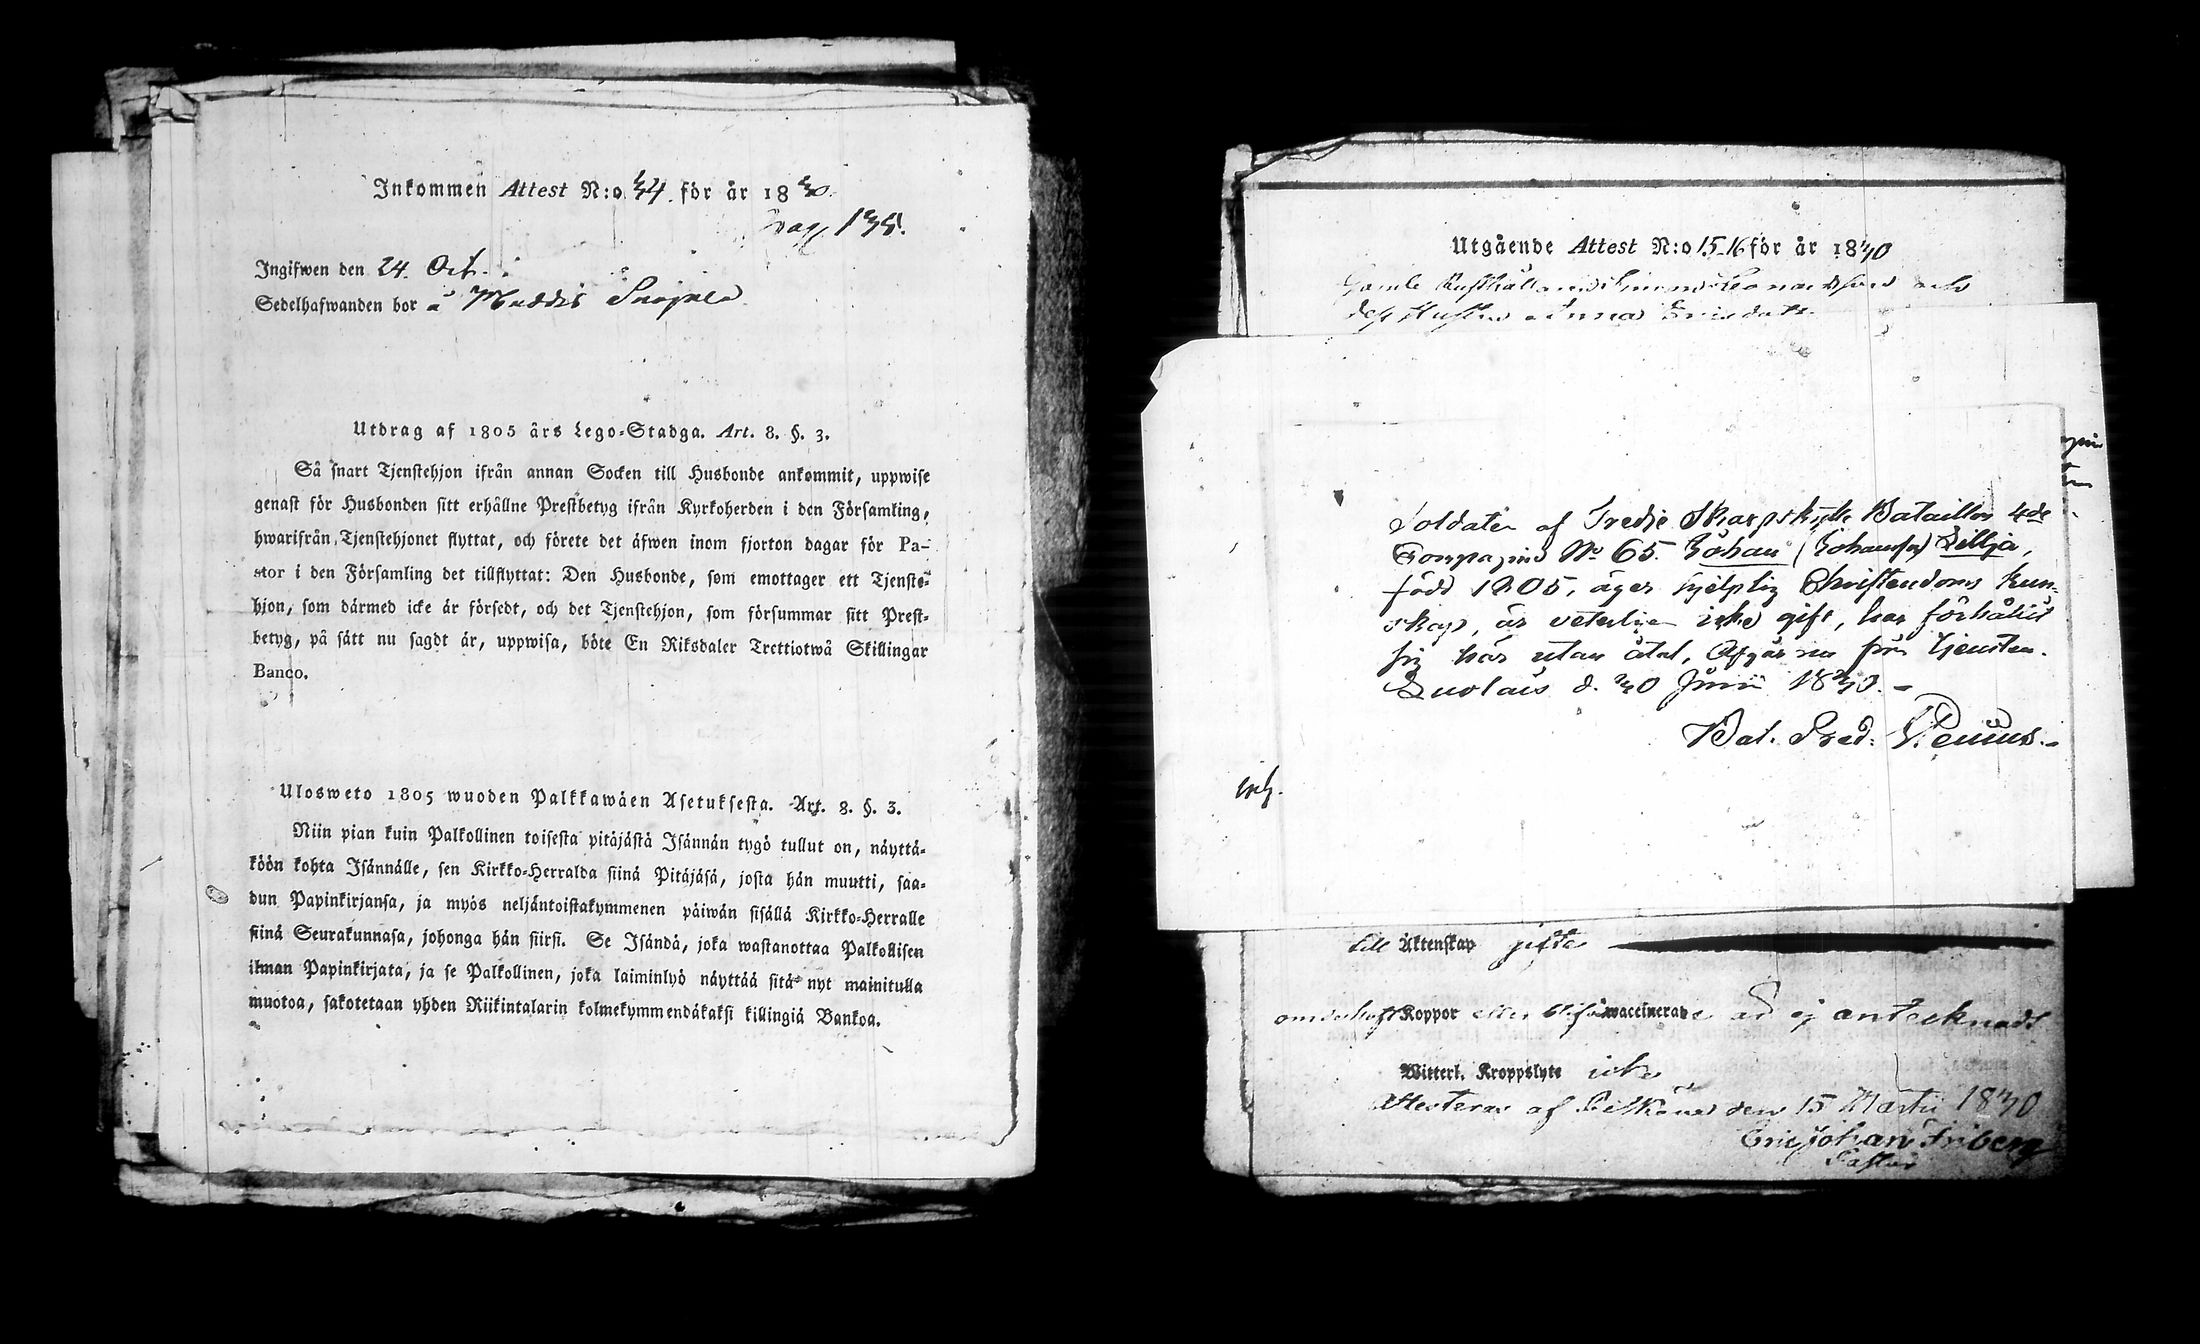 Inkommen Attest N:o 34 för år 1830.
pag. 135.
Ingifwen den 24 Oct.
Sedelhafwanden bor å
Utdrag af 1805 års Lego-Stadga. Art. 8. §. 3.
Så snart Tjenstehjon ifrån annan Socken till Husbonde ankommit, uppwise
genast för Husbonden sitt erhållne Prestbetyg ifrån Kyrkoherden i den Församling,
hwarifrån Tjenstehjonet flyttat, och förete det äfwen inom fjorton dagar för Pa-
stor i den Församling det tillflyttat: Den Husbonde, som emottager ett Tjenste-
hjon, som därmed icke är försedt, och det Tjenstehjon, som försummar sitt Prest-
betyg, på sätt nu sagdt är, uppwisa, böte En Riksdaler Trettiotwå Skillingar
Banco.
Ulosweto 1805 wuoden Palkkawäen Asetuksesta. Art. 8. §. 3.
Niin pian kuin Palkollinen toisesta pitäjästä Isännän tygö tullut on, näyttä-
köön kohta Isännälle, sen Kirkko-Herralda siinä Pitäjäsä, josta hän muutti, saa-
dun Papinkirjansa, ja myös neljäntoistakymmenen päiwän sisällä Kirkko-Herralle
siinä Seurakunnasa, johonga hän siirsi. Se Isändä, joka wastanottaa Palkollisen
ilman Papinkirjata, ja se Palkollinen, joka laiminlyö näyttää sitä nyt mainitulla
muotoa, sakotetaan yhden Riikintalarin kolmekymmendäkaksi killingiä Bankoa.
Utgående Attest N:o 15-16 för år 1830
Gamle Rusthållaren Simon Leonardsson och
dess Hustru Anna Ericsdotr.
Soldaten af Tredje Skarpskytte Bataillon 4de
Compagnie No 65. Johan (Johansson) Lillja,
född 1805, äger hjelplig Christendoms kun-
skap, är veterligen icke gift, har förhållit
sig här utan åtal, Afgår nu från tjensten.
d. 30 Junii 1830.
Bat. Pred.
till Äktenskap gifte
om de haft Koppor eller blifvit vaccinerade är ej antecknadt
Witterl. Kroppslyte icke
Attesteras af Pelkäne den 15 Martii 1830
Eric Johan Friberg
Pastor